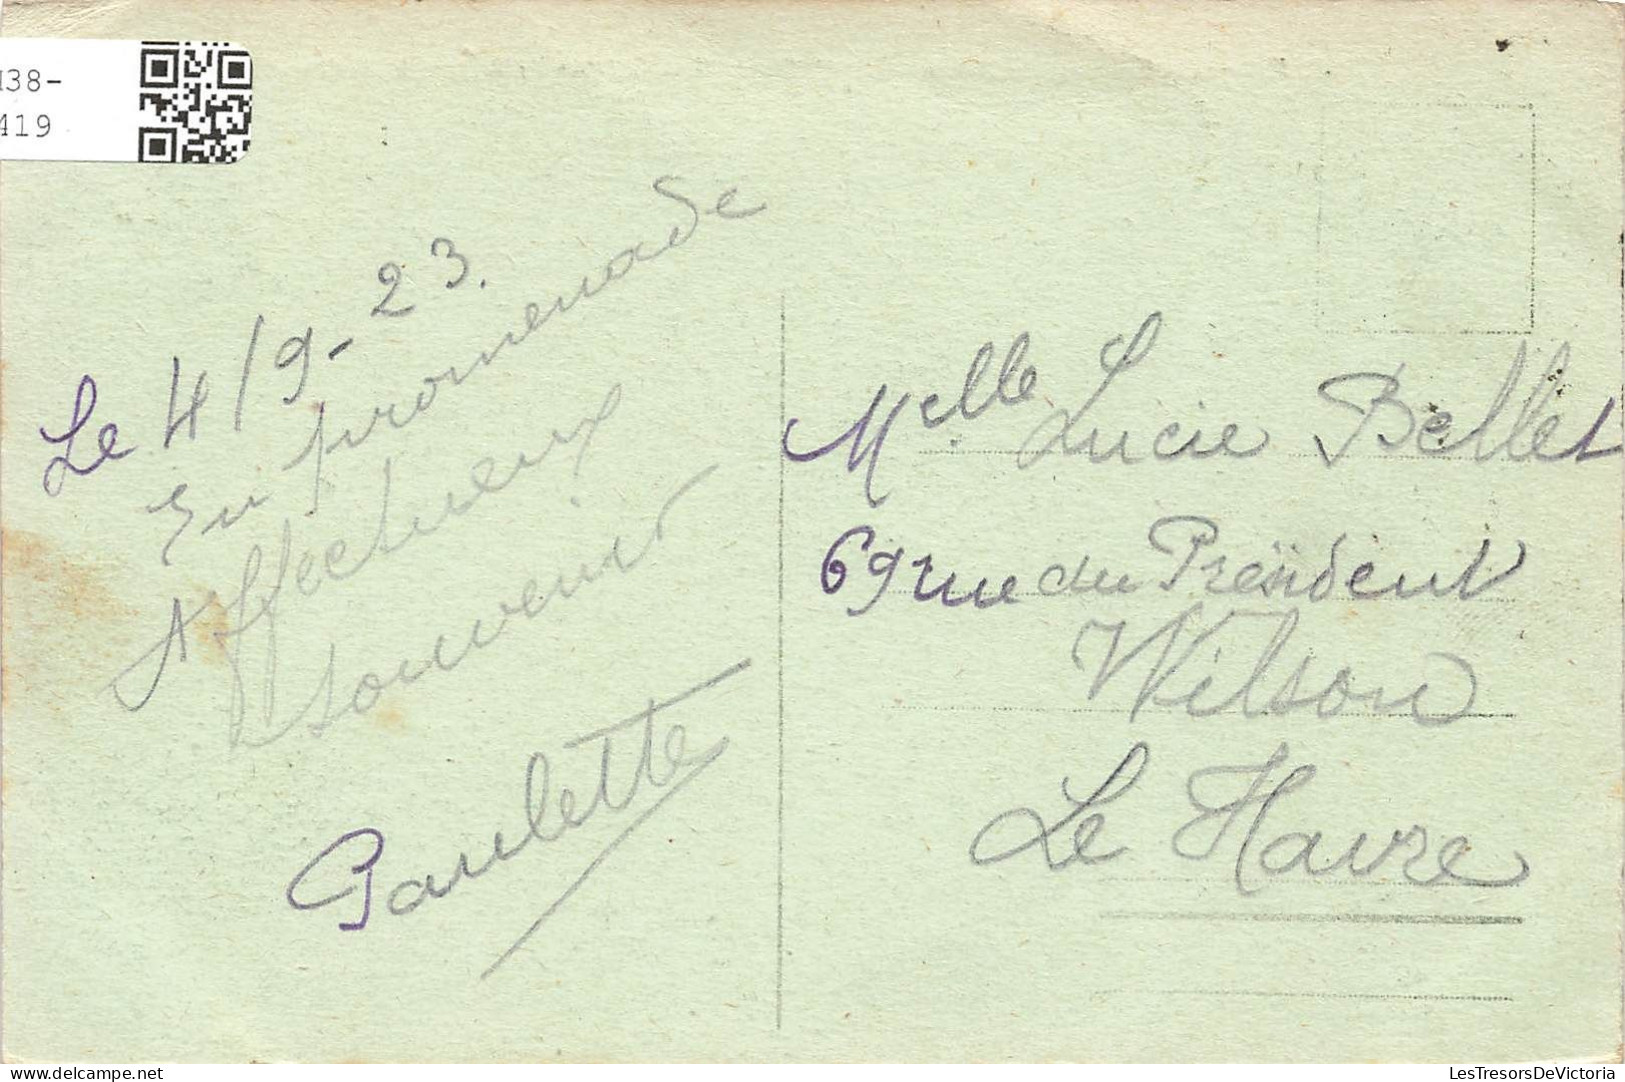 138-
419
Le 4/9-23.
En promenade
Affectueux
souvenir
Paulette
Melle Lucie Bellet
69 rue du Président
Wilson
Le Havre
delcampe.net
LesTresorsDeVictoria